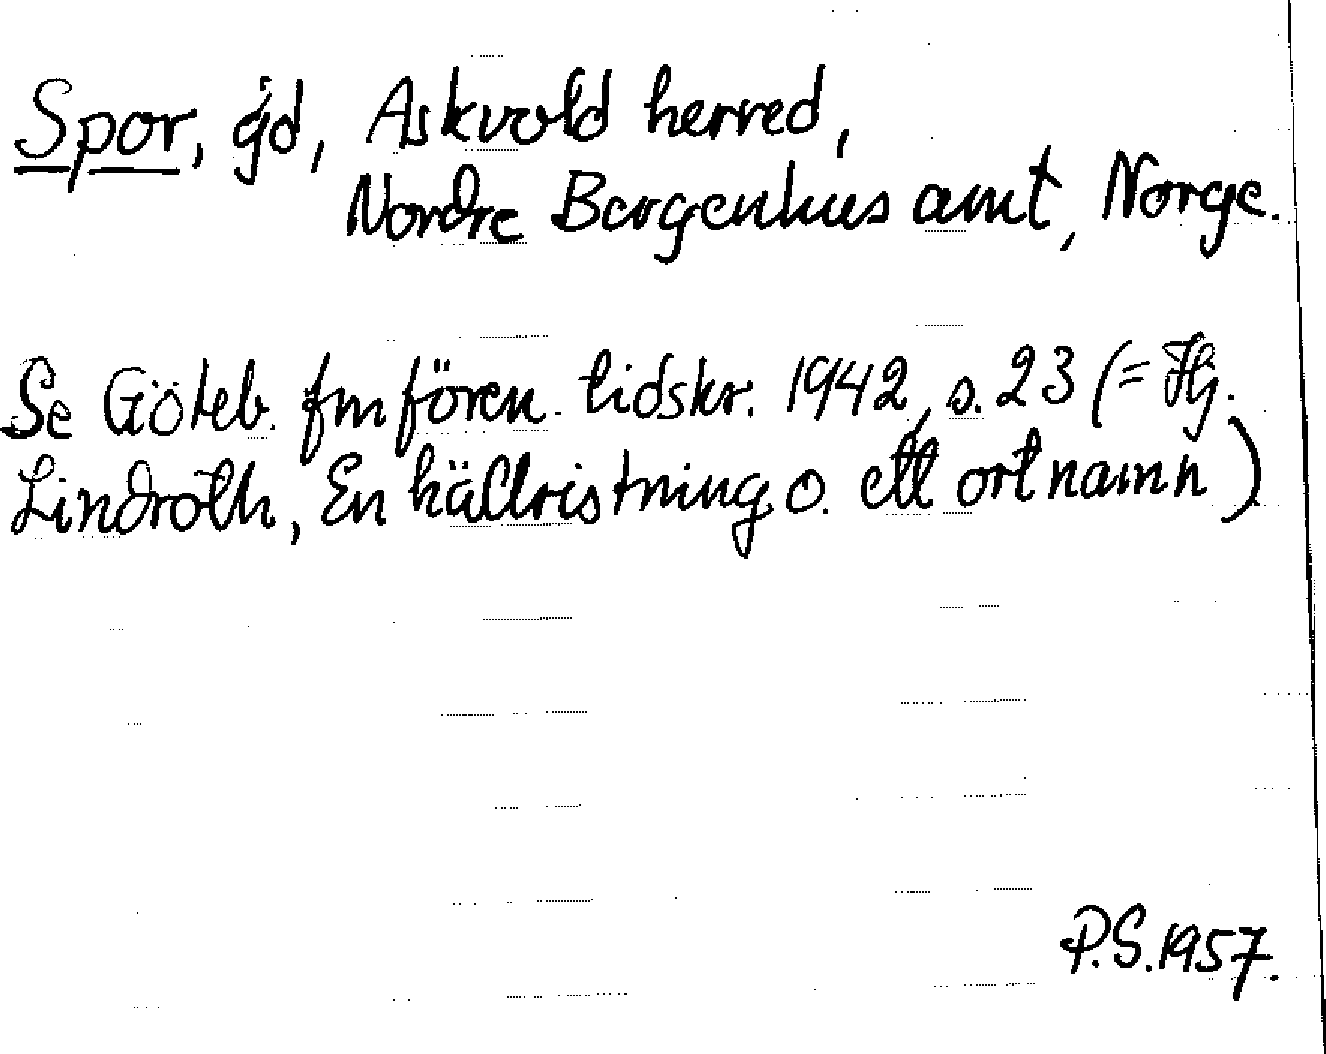 Spor, gd, Askvold herred,
Nordre Bergenhus amt, Norge.
Se Göteb. fmfören. tidskr. 1942, s. 23 (= Hj.
Lindroth, En hällristning o. ett ortnamn)
P.S. 1957.